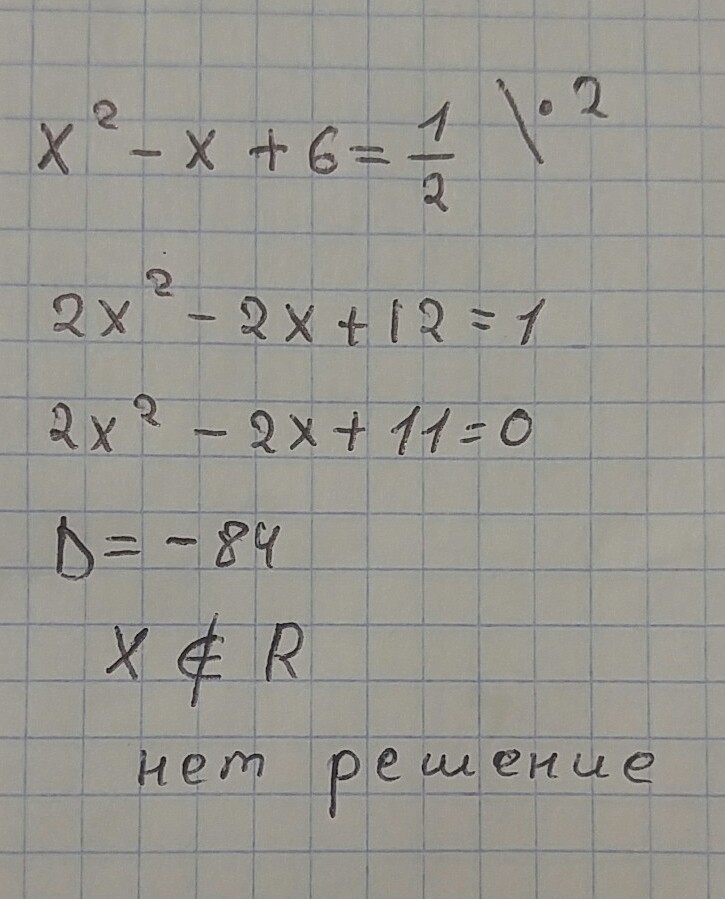 x² - x + 6 = 1/2 \ · 2
2x² - 2x + 12 = 1
2x² - 2x + 11 = 0
D = - 84
x ∉ R
нет решение